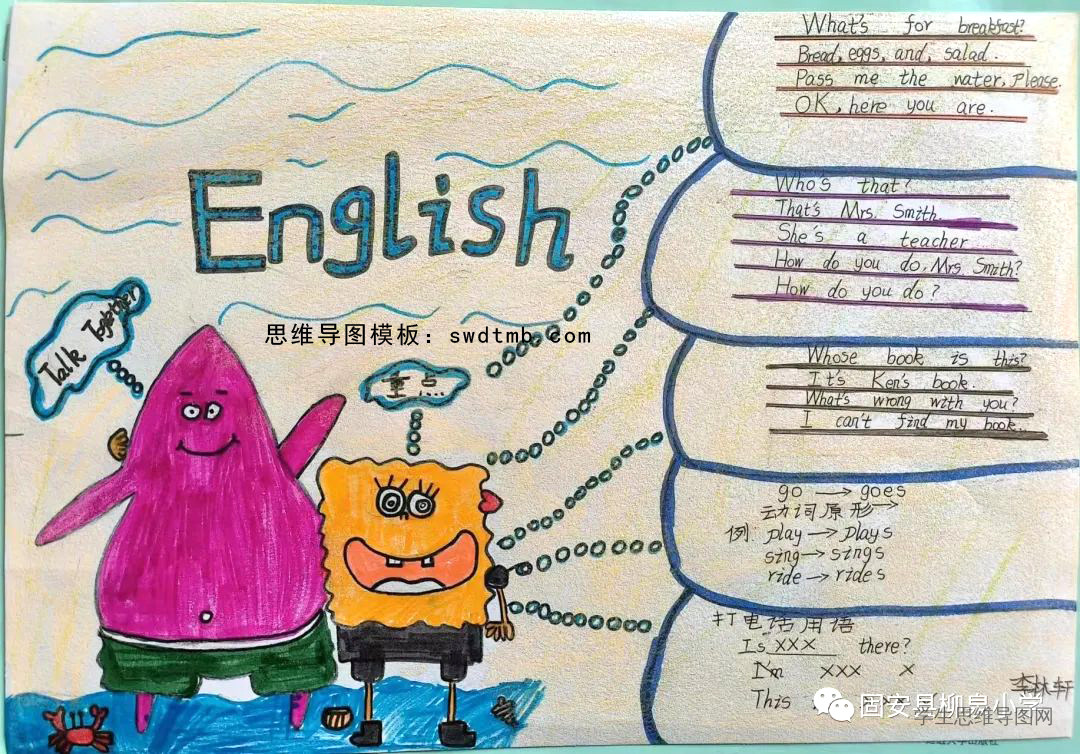 What's for breakfast?
Bread, eggs, and, salad.
Pass me the water, please.
OK, here you are.
English
Who's that?
That's Mrs. Smith.
She's a teacher
How do you do, Mrs. Smith?
How do you do?
Talk Together
思维导图模板：swdtmb.com
重点
Whose book is this?
It's Ken's book.
What's wrong with you?
I can't find my book...
go → goes
动词原形→
例: play → plays
sing → sings
ride → rides
打电话用语
Is XXX there?
I'm XXX X
This
李林轩
固安县柳泉小学
学生思维导图网